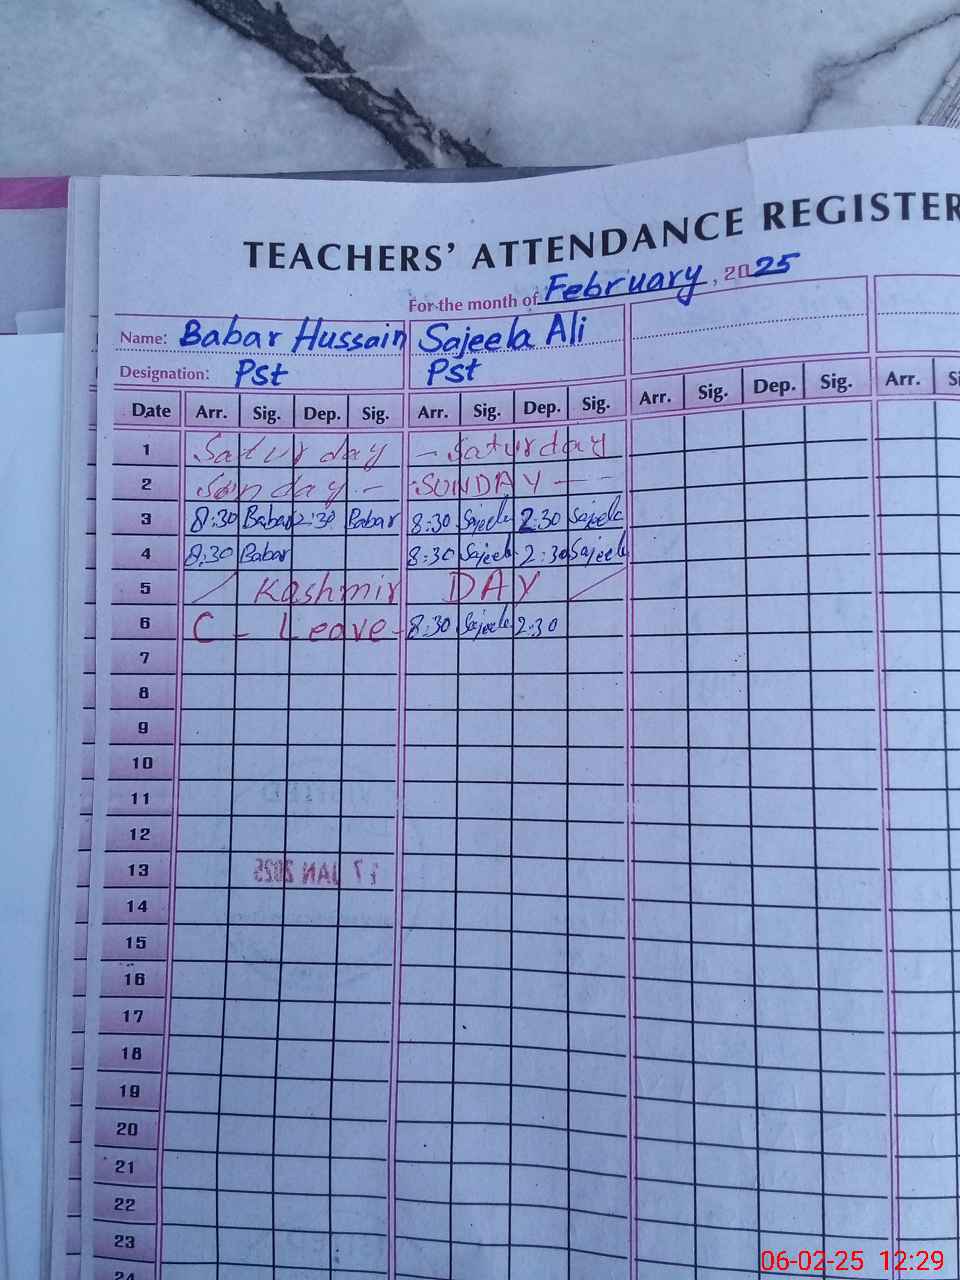 TEACHERS' ATTENDANCE REGISTER
For the month of February, 2025
Name: Babar Hussain Sajeela Ali
Designation: Pst Pst
Date Arr. Sig. Dep. Sig. Arr. Sig. Dep. Sig. Arr. Sig. Dep. Sig. Arr.
1 Saturday - Saturday
2 Sunday - SUNDAY - -
3 8:30 Babar 2:30 Babar 8:30 Sajeela 2:30 Sajeela
4 8:30 Babar 8:30 Sajeela 2:30 Sajeela
5 Kashmir DAY
6 C - Leave - 8:30 Sajeela 2:30
7
8
9
10
11
12
13
17 JAN 2025
14
15
16
17
18
19
20
21
22
23
24
06-02-25 12:29